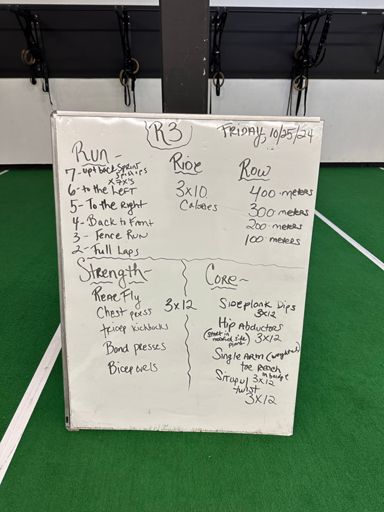 R3
FRIDAY 10/25/24
Run -
7- up & back sprint
x 7x's
6- to the LEFT
5- To the Right
4- Back to Front
3- Fence Run
2- Full Laps
Ride
3x10
Calories
Row
400 meters
300 meters
200 meters
100 meters
Strength -
Rear Fly
Chest press
3x12
tricep kickbacks
Band presses
Bicep curls
Core -
Side plank Dips
3x12
Hip Abductors
(start in modified side plank) 3x12
Single Arm (weighted)
toe Reach
in bridge
3x12
Situp w/
twist
3x12